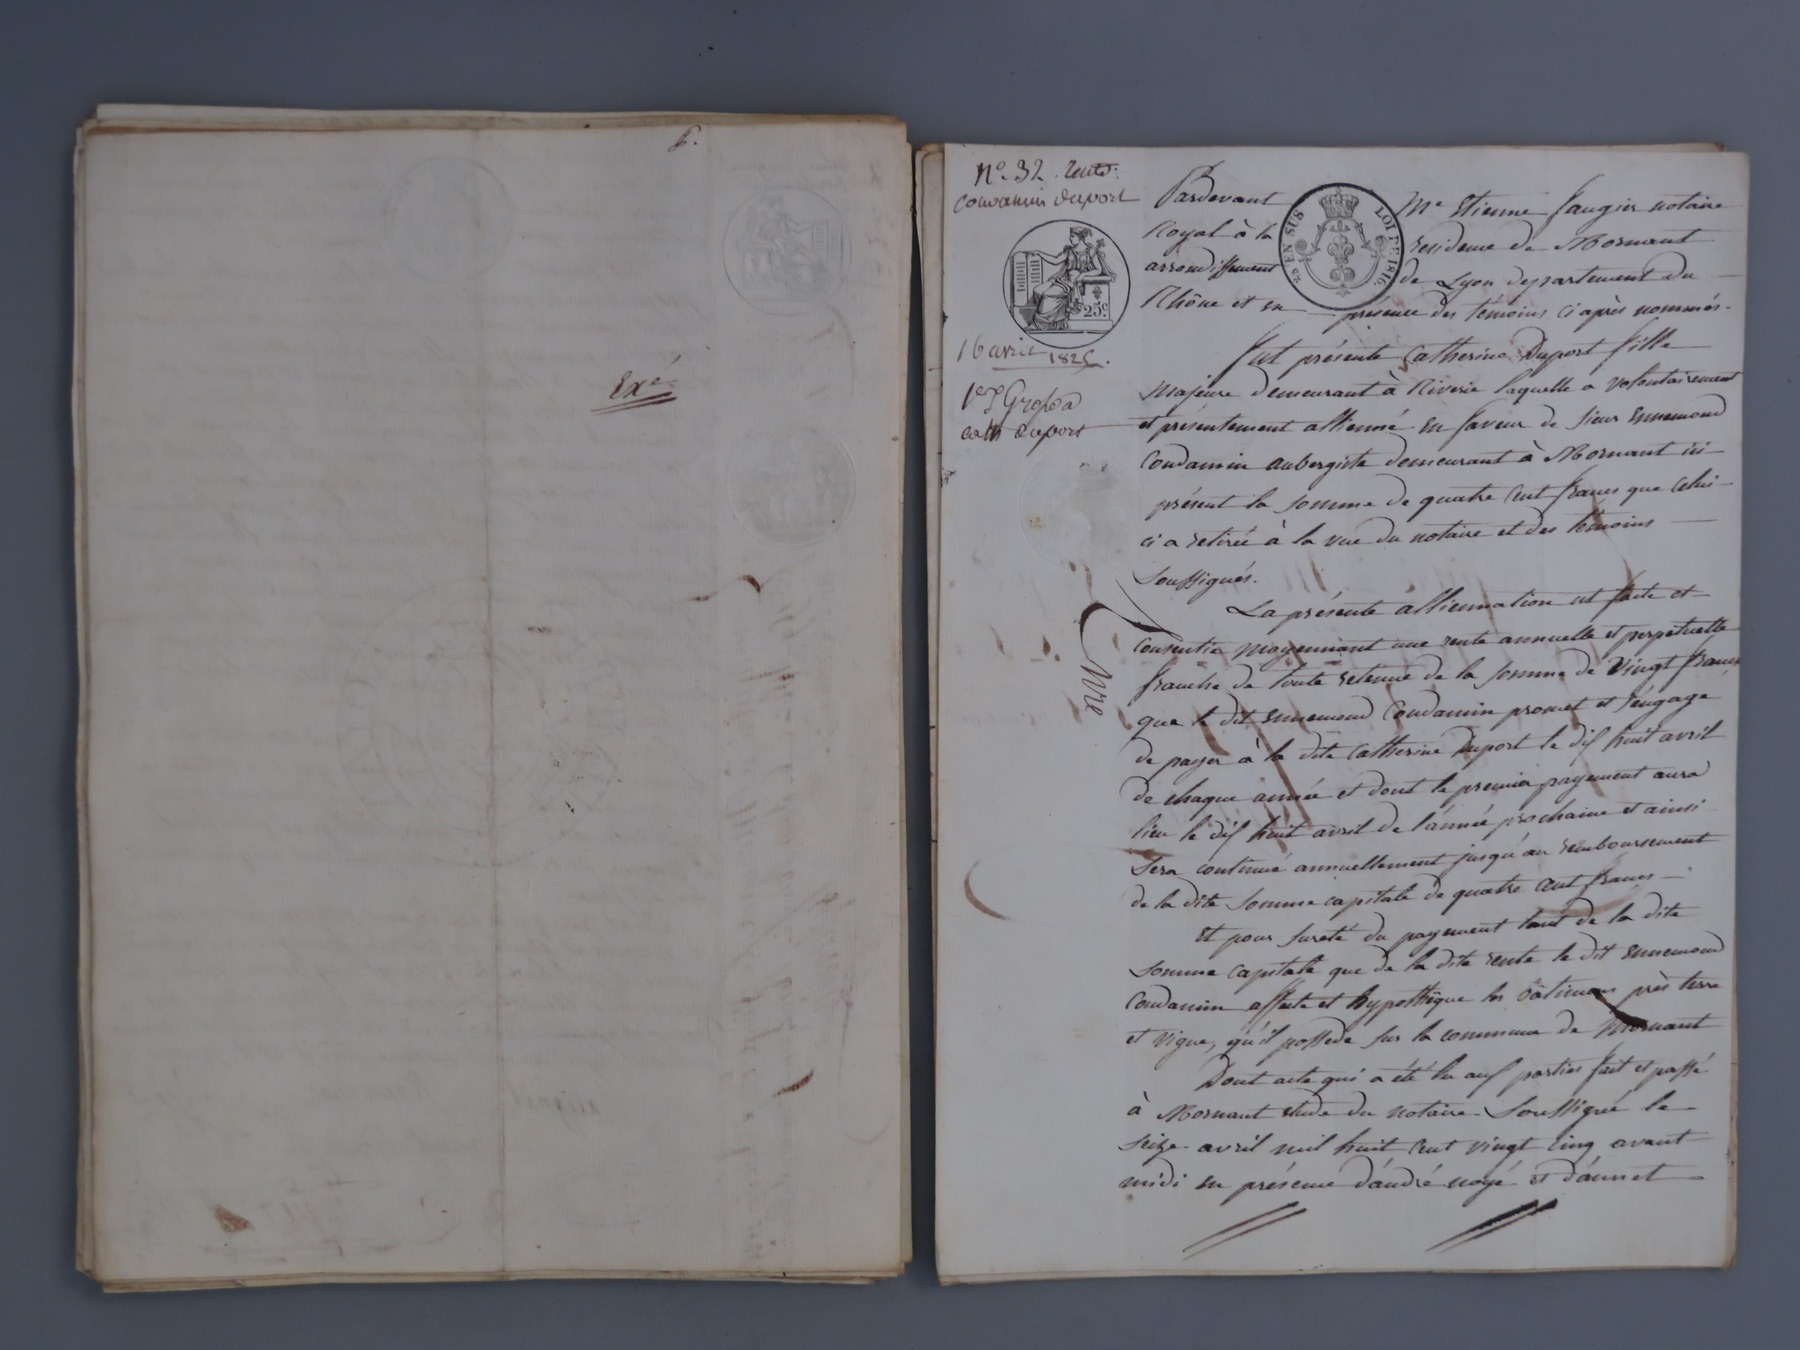 6.
Exé
N.º 32. rente.
Condamin Duport
25 EN SUS LOI DE 1816.
25 c.
16 avril 1825.
1e Grosse a
cath Duport
Pardevant Me Etienne Faugier notaire
Royal à la résidence de Mornant
arrondissement de Lyon departement du
Rhône et en présence des témoins ci après nommés.
fut présente Catherine Duport fille
majeure demeurant à Riverie laquelle a volontairement
et présentement allienné en faveur de sieur Ennemond
Condamin aubergiste demeurant à Mornant ici
présent la somme de quatre cent francs que celui
ci a retirée à la vue du notaire et des témoins
soussignés.
La présente alliennation est faite et
consentie moyennant une rente annuelle et perpetuelle
franche de toute retenue de la somme de vingt francs
que le dit Ennemond Condamin promet et s'engage
de payer à la dite Catherine Duport le dix huit avril
de chaque année et dont le premier payement aura
lieu le dix huit avril de l'année prochaine et ainsi
sera continué annuellement jusqu'au remboursement
de la dite somme capitale de quatre cent francs
Et pour sureté du payement tant de la dite
somme capitale que de la dite rente le dit Ennemond
Condamin affecte et hypothèque les bâtimens près terre
et vigne, qu'il possede sur la commune de Mornant
Dont acte qui a été lu aux parties fait et passé
à Mornant etude du notaire soussigné le
seize avril mil huit cent vingt cinq avant
midi en présence d'andré noyé et d'annet